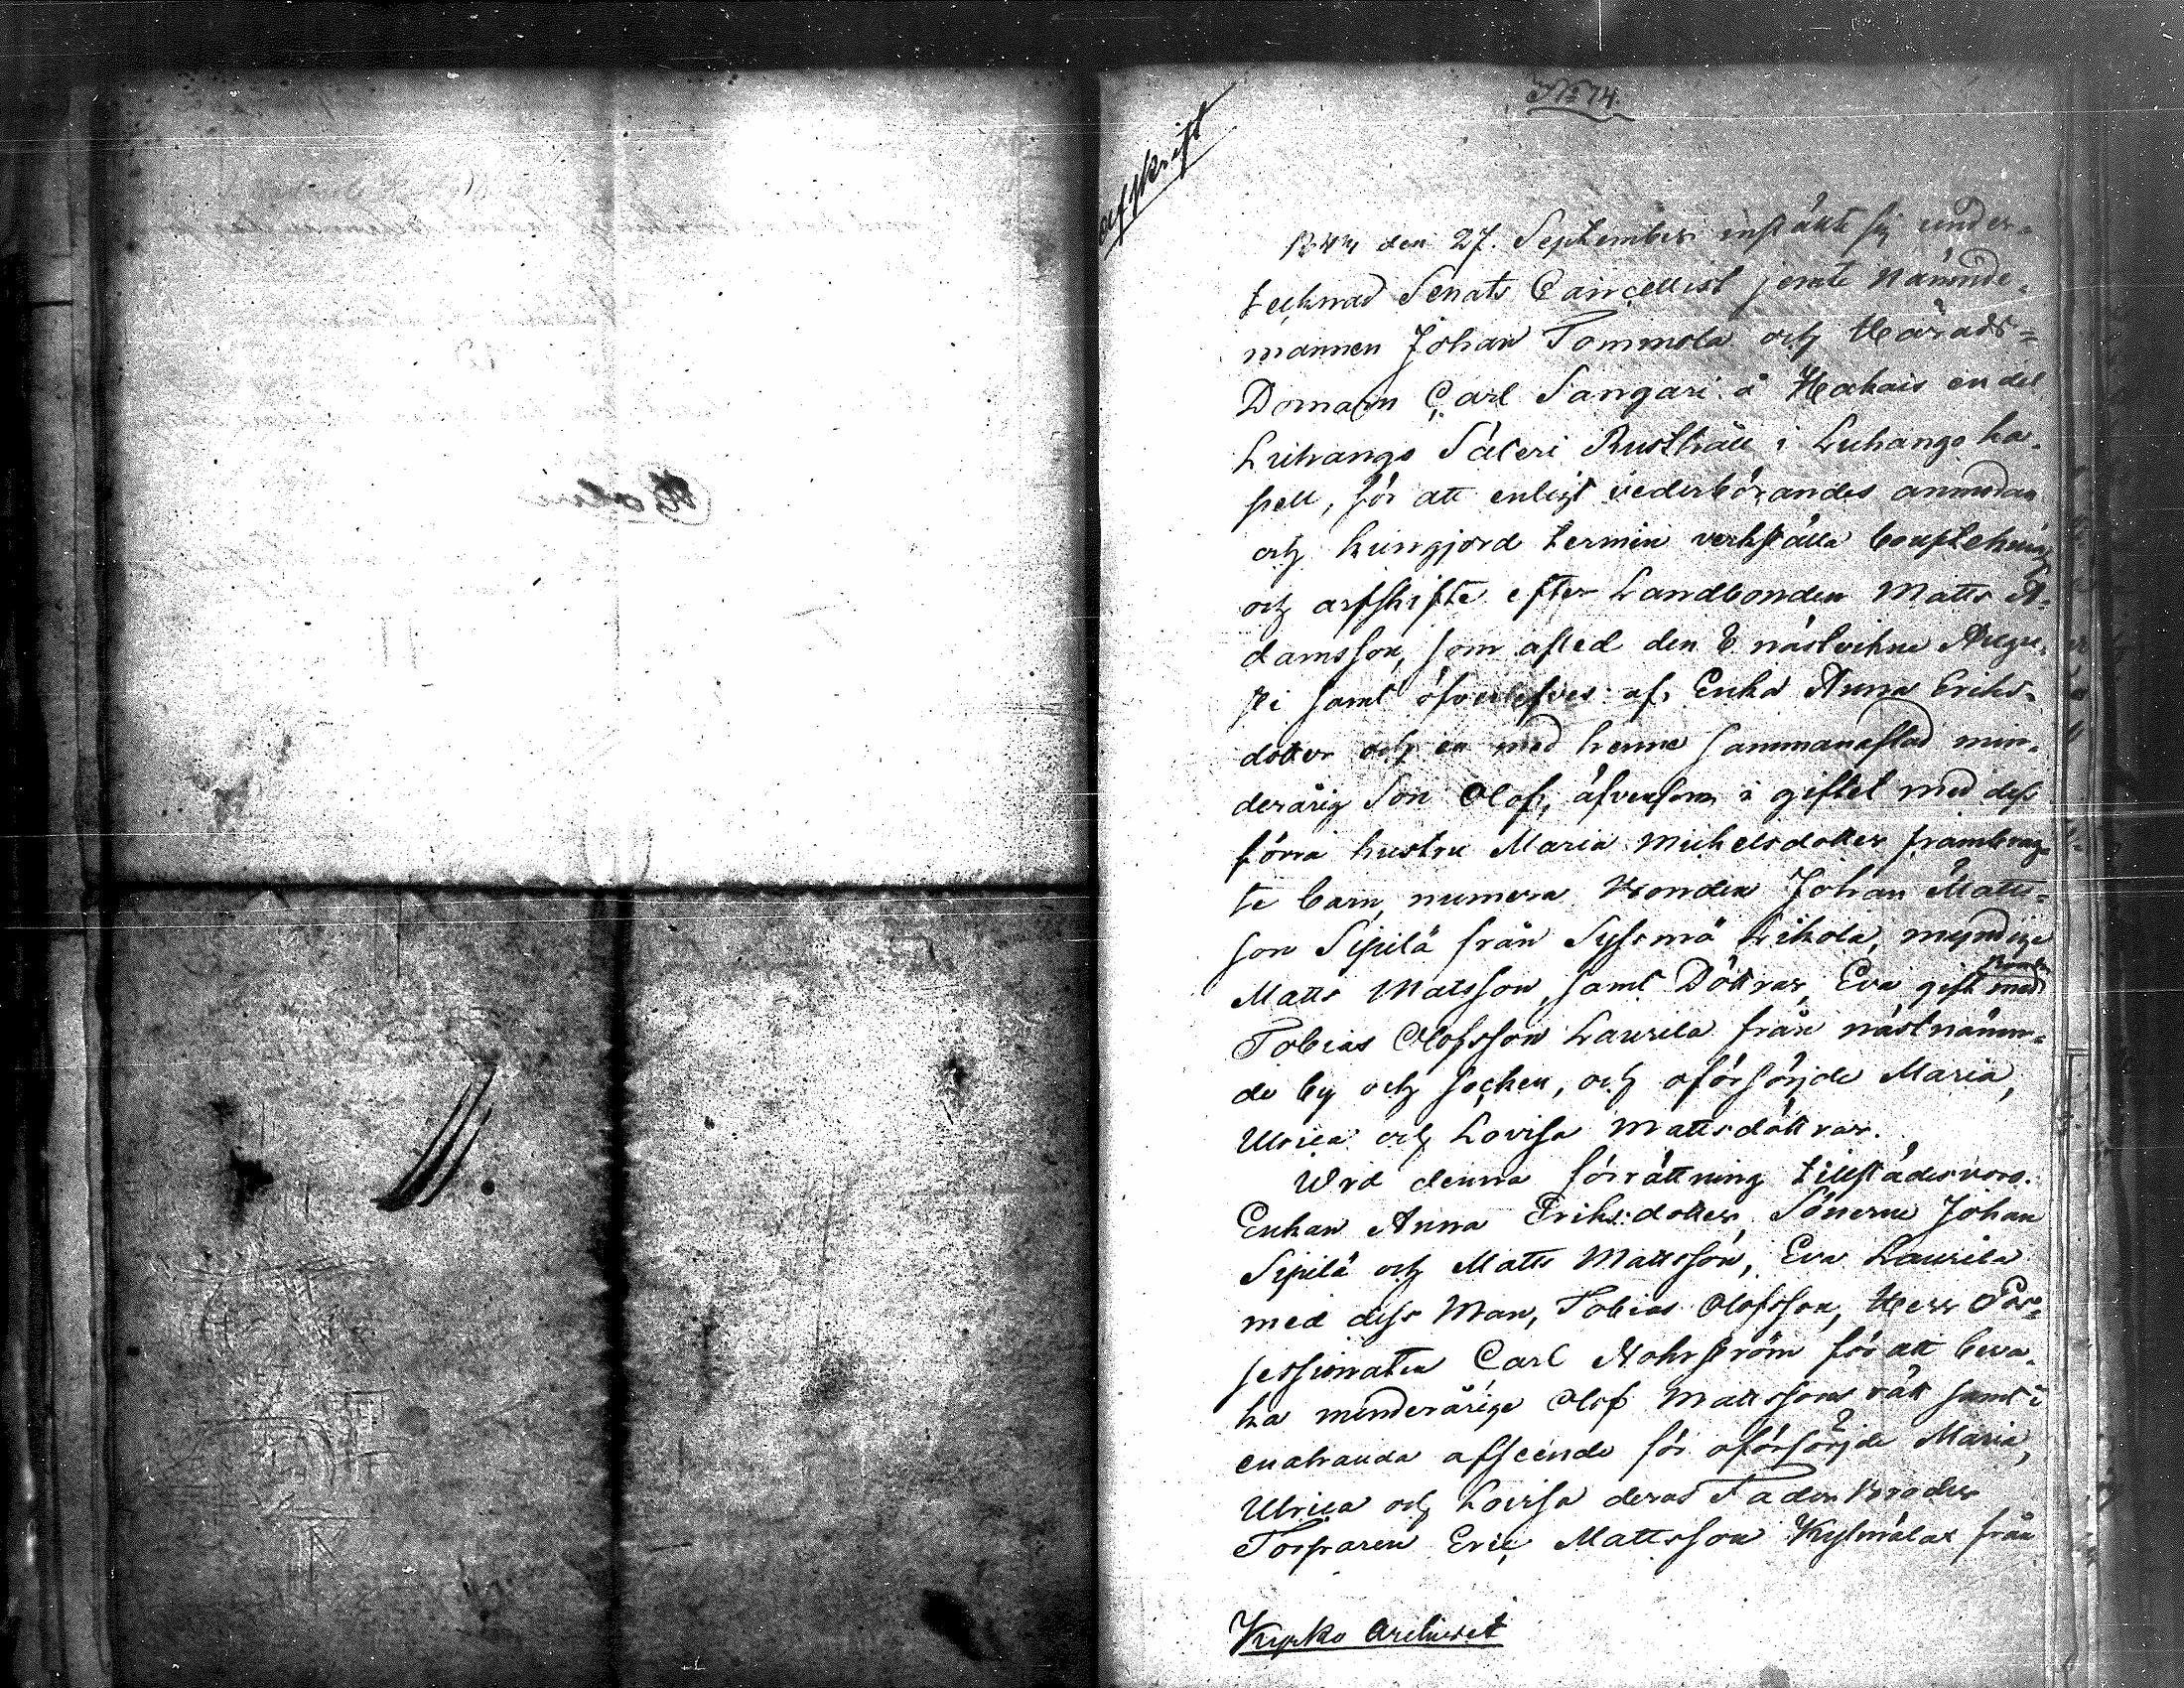 No 74.
afskrift
den 27. September inställte sig under-
tecknad Senats Cancellist jemte Nämnde-
mannen Johan Tommola och Härads-
Domarn Carl Sangari å Hakais en del
Luhango Säteri Rusthåll i Luhango ka-
pell, för att enligt vederbörandes anmodan
och kungjord termin verkställa bouptekning
och arfskifte efter Landbonden Matts A-
damsson, som afled den 6 nästvikne Augu-
sti samt öfverlefves af Enka Anna Eriks-
dotter och en med henne sammanaflad min-
derårig Son Olof, äfvensom i giftet med dess
förra hustru Maria Michelsdotter frambrag-
te barn, numera Bonden Johan Matts-
son Sipilä från Syssmä kikola, myndige
Matts Matsson, samt Döttrar, Eva gift med
Tobias Olofsson Laurila från nästnämn-
de by och socken, och oförsörjde Maria,
Ulrica och Lovisa Mattsdöttrar.
Wid denna förrättning tillstädesvoro.
Enkan Anna Eriksdotter, Sönerne Johan
Sipilä och Matts Mattsson, Eva Laurila
med dess Man, Tobias Olofsson, Herr Pos-
sessionaten Carl Nohrström för att beva-
ka minderårige Olof Mattssons rätt samt i
enahanda afseende för oförsörjde Maria,
Ulrica och Lovisa deras Faders Broder
Torparen Eric Mattsson Kylmälax från
Kyrko Archivet